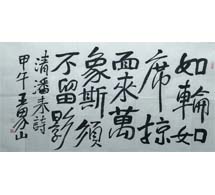 如輪如
席掠
面來萬
象斯須
不留影
清潘耒詩
甲午 山